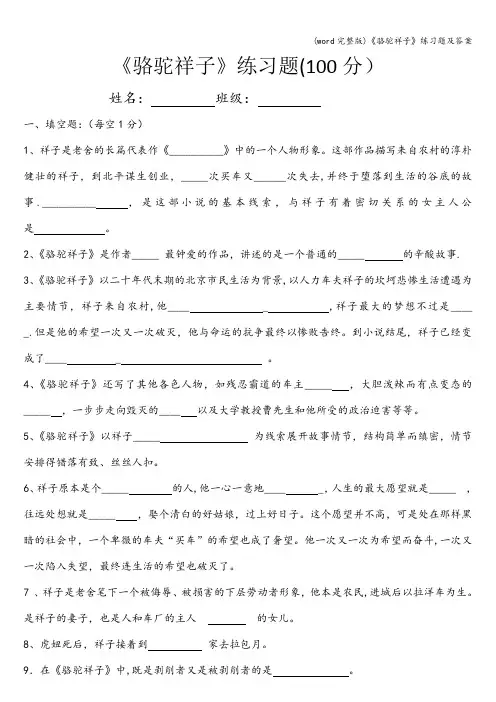 (word完整版)《骆驼祥子》练习题及答案
《骆驼祥子》练习题(100分）
姓名： 班级：
一、填空题:（每空1分）
1、祥子是老舍的长篇代表作《__________》中的一个人物形象。这部作品描写来自农村的淳朴
健壮的祥子，到北平谋生创业，_____次买车又______次失去,并终于堕落到生活的谷底的故
事.__________ ，是这部小说的基本线索，与祥子有着密切关系的女主人公
是 。
2、《骆驼祥子》是作者_____ 最钟爱的作品，讲述的是一个普通的_____ 的辛酸故事.
3、《骆驼祥子》以二十年代末期的北京市民生活为背景,以人力车夫祥子的坎坷悲惨生活遭遇为
主要情节，祥子来自农村,他____ _ ,祥子最大的梦想不过是____
_.但是他的希望一次又一次破灭，他与命运的抗争最终以惨败告终。到小说结尾，祥子已经变
成了____ _ 。
4、《骆驼祥子》还写了其他各色人物，如残忍霸道的车主_____ ，大胆泼辣而有点变态的
_____ ，一步步走向毁灭的____ 以及大学教授曹先生和他所受的政治迫害等等。
5、《骆驼祥子》以祥子_____ 为线索展开故事情节，结构简单而缜密，情节
安排得错落有致、丝丝人扣。
6、祥子原本是个_____ 的人,他一心一意地____ _,人生的最大愿望就是_____ ，
往远处想就是_____ ，娶个清白的好姑娘，过上好日子。这个愿望并不高，可是处在那样黑
暗的社会中，一个卑微的车夫“买车”的希望也成了奢望。他一次又一次为希望而奋斗,一次又
一次陷入失望，最终连生活的希望也破灭了。
7 、祥子是老舍笔下一个被侮辱、被损害的下层劳动者形象，他本是农民,进城后以拉洋车为生。
是祥子的妻子，也是人和车厂的主人 的女儿。
8、虎妞死后，祥子接着到 家去拉包月。
9．在《骆驼祥子》中,既是剥削者又是被剥削者的是 。